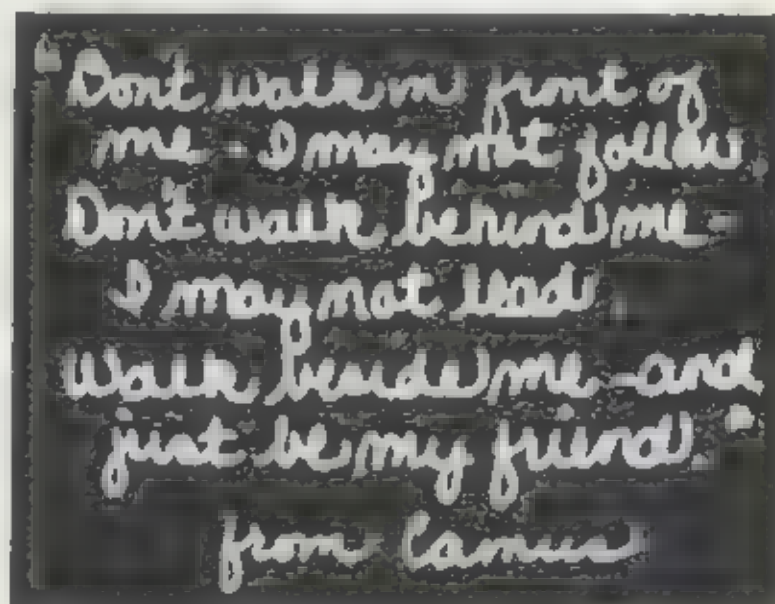 "Don't walk in front of
me - I may not follow
Don't walk behind me -
I may not lead
Walk beside me - and
just be my friend"
from Camus